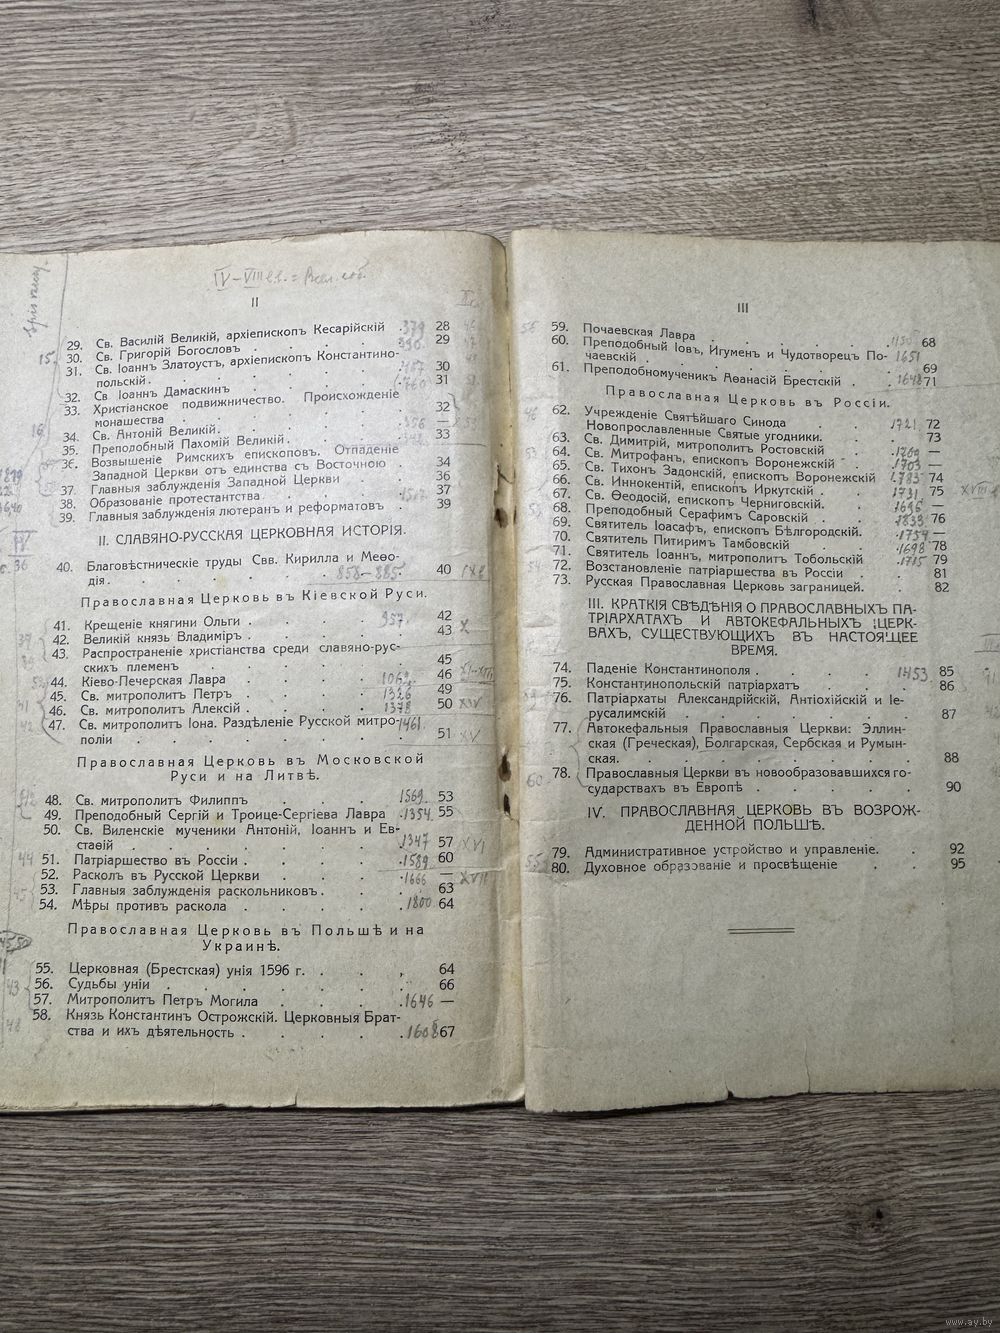 IV–VIII в.в. =
II
29. Св. Василій Великій, архіепископъ Кесарійскій 379 28
30. Св. Григорій Богословъ . . . . . 390. 29
31. Св. Іоаннъ Златоустъ, архіепископъ Константино-
польскій. . . . . . . 407 30
32. Св Іоаннъ Дамаскинъ . . . . . 760 31
33. Христіанское подвижничество. Происхожденіе
монашества . . . . . . 32
34. Св. Антоній Великій. . . . . . 356 —
35. Преподобный Пахомій Великій. . . . 348 33
36. Возвышеніе Римскихъ епископовъ. Отпаденіе
Западной Церкви отъ единства съ Восточною . 34
37. Главныя заблужденія Западной Церкви . . 36
38. Образованіе протестантства . . . . 1517 37
39. Главныя заблужденія лютеранъ и реформатовъ . 39
II. СЛАВЯНО-РУССКАЯ ЦЕРКОВНАЯ ИСТОРІЯ.
40. Благовѣстническіе труды Свв. Кирилла и Меѳо-
дія. . . . . . 858–885. 40 IX в
Православная Церковь въ Кіевской Руси.
41. Крещеніе княгини Ольги . . . 957. 42
42. Великій князь Владиміръ . . . . . 43 X
43. Распространеніе христіанства среди славяно-рус-
скихъ племенъ . . . . . . 45
44. Кіево-Печерская Лавра . . . . 1062. 46
45. Св. митрополитъ Петръ . . . . 1326 49
46. Св. митрополитъ Алексій . . . . 1378 50 XIV
47. Св. митрополитъ Іона. Раздѣленіе Русской митро- 1461.
поліи . . . . . . . 51 XV
Православная Церковь въ Московской
Руси и на Литвѣ.
48. Св. митрополитъ Филиппъ . . . . 1569. 53
49. Преподобный Сергій и Троице-Сергіева Лавра . 1354 55
50. Св. Виленскіе мученики Антоній, Іоаннъ и Ев-
стаѳій . . . . . . . 1347 57 XVI
51. Патріаршество въ Россіи . . . . . 1589 60
52. Расколъ въ Русской Церкви . . . . 1666 — XVII
53. Главныя заблужденія раскольниковъ. . . . 63
54. Мѣры противъ раскола . . . . . 1800 64
Православная Церковь въ Польшѣ и на
Украинѣ.
55. Церковная (Брестская) унія 1596 г. . . . 64
56. Судьбы уніи . . . . . . . 66
57. Митрополитъ Петръ Могила . . . . 1646 —
58. Князь Константинъ Острожскій. Церковныя Брат-
ства и ихъ дѣятельность . . . . . 1608 67
III
59. Почаевская Лавра . . . . . . 68
60. Преподобный Іовъ, Игуменъ и Чудотворецъ По- 1651
чаевскій . . . . . . . 69
61. Преподобномученикъ Аѳанасій Брестскій . . 1648 71
Православная Церковь въ Россіи.
62. Учрежденіе Святѣйшаго Синода . . . 1721. 72
Новопрославленные Святые угодники. . . . 73
63. Св. Димитрій, митрополитъ Ростовскій . . —
64. Св. Митрофанъ, епископъ Воронежскій . . 1703 —
65. Св. Тихонъ Задонскій, епископъ Воронежскій 1783 74
66. Св. Иннокентій, епископъ Иркутскій . . . 1731 75
67. Св. Ѳеодосій, епископъ Черниговскій. . . 1696 —
68. Преподобный Серафимъ Саровскій . . . 1833 76
69. Святитель Іоасафъ, епископъ Бѣлгородскій. . 1754 —
70. Святитель Питиримъ Тамбовскій . . . 1698 78
71. Святитель Іоаннъ, митрополитъ Тобольскій . 1715 79
72. Возстановленіе патріаршества въ Россіи . . 81
73. Русская Православная Церковь заграницей. . . 82
III. КРАТКІЯ СВѢДѢНІЯ О ПРАВОСЛАВНЫХЪ ПА-
ТРІАРХАТАХЪ И АВТОКЕФАЛЬНЫХЪ ЦЕРК-
ВАХЪ, СУЩЕСТВУЮЩИХЪ ВЪ НАСТОЯЩЕЕ
ВРЕМЯ.
74. Паденіе Константинополя . . . . 1453 85
75. Константинопольскій патріархатъ . . . . 86
76. Патріархаты Александрійскій, Антіохійскій и Іе-
русалимскій . . . . . . . 87
77. Автокефальныя Православныя Церкви: Эллин-
ская (Греческая), Болгарская, Сербская и Румын-
ская. . . . . . . . 88
78. Православныя Церкви въ новообразовавшихся го-
сударствахъ въ Европѣ . . . . . 90
IV. ПРАВОСЛАВНАЯ ЦЕРКОВЬ ВЪ ВОЗРОЖ-
ДЕННОЙ ПОЛЬШѢ.
79. Административное устройство и управленіе. . . 92
80. Духовное образованіе и просвѣщеніе . . 95
www.ay.by